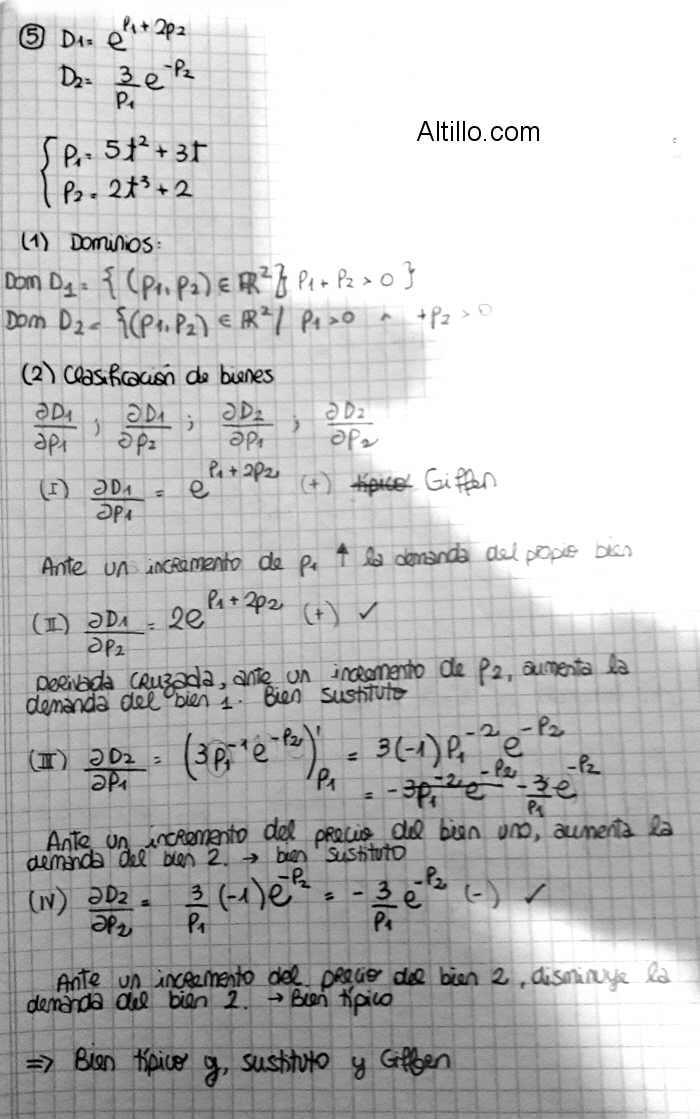 ⑤ D1= e^{P1+2P2}
D2= 3/P1 e^{-P2}
Altillo.com
{ P1= 5t² + 3t
P2= 2t³ + 2
(1) Dominios:
Dom D1= {(P1,P2) ∈ ℝ² / P1+P2 > 0}
Dom D2= {(P1,P2) ∈ ℝ² / P1>0 ^ +P2 > 0
(2) Clasificación de bienes
∂D1/∂P1 ; ∂D1/∂P2 ; ∂D2/∂P1 ; ∂D2/∂P2
(I) ∂D1/∂P1 = e^{P1+2P2} (+) típico Giffen
Ante un incremento de P1 ↑ la demanda del propio bien
(II) ∂D1/∂P2 = 2e^{P1+2P2} (+) ✓
Derivada cruzada, ante un incremento de P2, aumenta la
demanda del bien 1. Bien sustituto
(III) ∂D2/∂P1 = (3P1^{-1} e^{-P2})'P1 = 3(-1)P1^{-2} e^{-P2}
= -3P1^{-2} e^{-P2} -3/P1 e^{-P2}
Ante un incremento del precio del bien uno, aumenta la
demanda del bien 2. → bien sustituto
(IV) ∂D2/∂P2 = 3/P1 (-1)e^{-P2} = -3/P1 e^{-P2} (-) ✓
Ante un incremento del precio del bien 2, disminuye la
demanda del bien 2. → Bien típico
⇒ Bien típico y, sustituto y Giffen